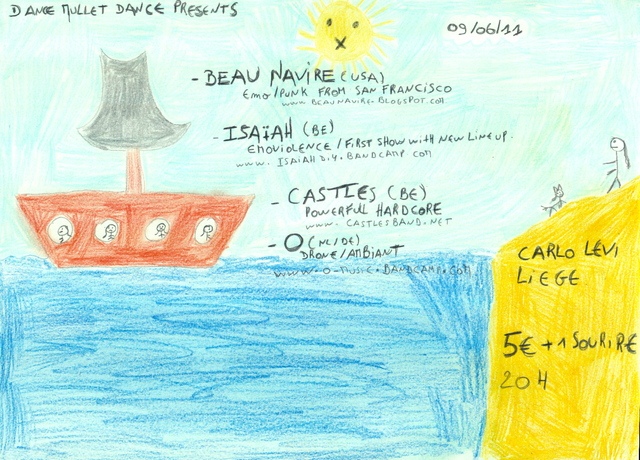 DANCE MULLET DANCE PRESENTS
09/06/11
- BEAU NAVIRE (USA)
EMO/PUNK FROM SAN FRANCISCO
www.BEAUNAVIRE.BLOGSPOT.COM
- ISAÏAH (BE)
EMOVIOLENCE / FIRST SHOW WITH NEW LINE UP.
www.ISAIAHD.I.Y.BANDCAMP.COM
- CASTLES (BE)
POWERFUL HARDCORE
www.CASTLESBAND.NET
- O (NL/DE)
DRONE/AMBIANT
www.O-MUSIC.BANDCAMP.COM
CARLO LEVI
LIEGE
5€ + 1 SOURIRE
20H